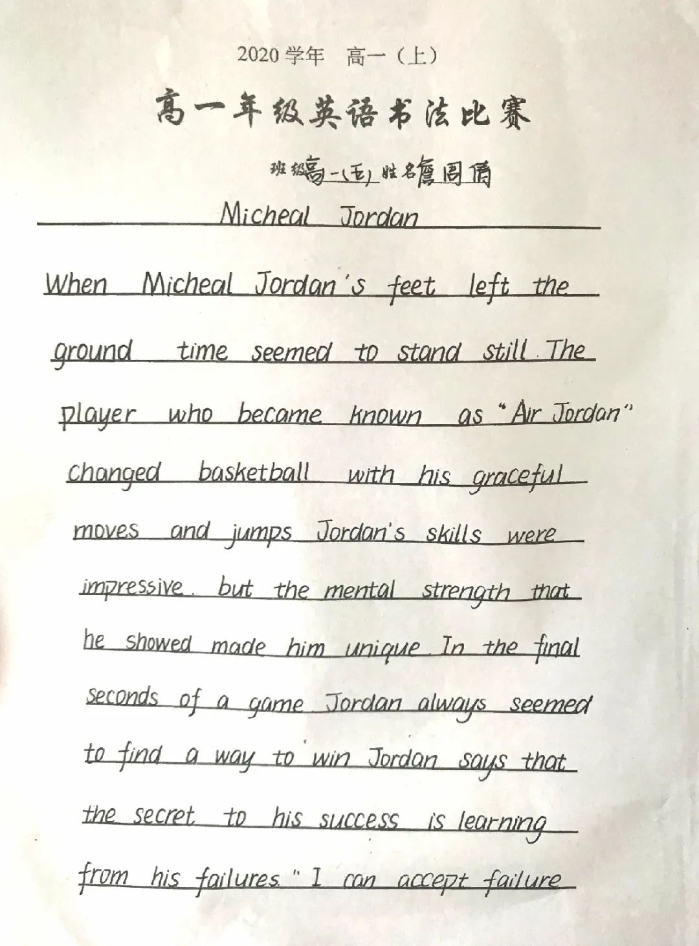 2020 学年 高一（上）
高一年级英语书法比赛
班级高一（五） 姓名詹周倩
Micheal Jordan
When Micheal Jordan's feet left the
ground time seemed to stand still. The
player who became known as "Air Jordan"
changed basketball with his graceful
moves and jumps Jordan's skills were
impressive. but the mental strength that
he showed made him unique. In the final
seconds of a game Jordan always seemed
to find a way to win Jordan says that
the secret to his success is learning
from his failures. " I can accept failure